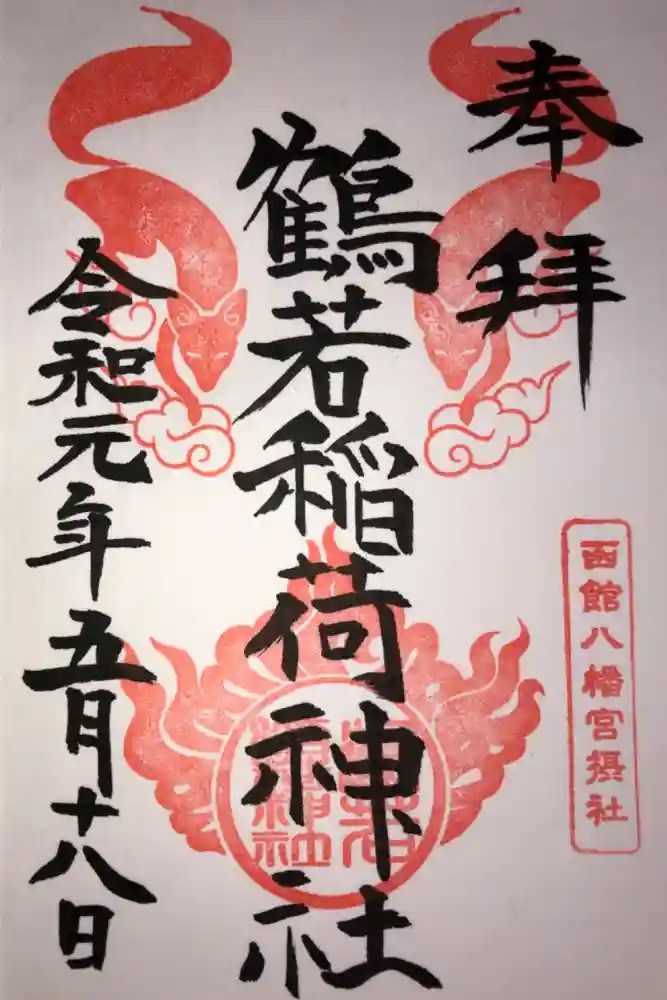 奉拝
函館八幡宮摂社
鶴若稲荷神社
令和元年五月十八日